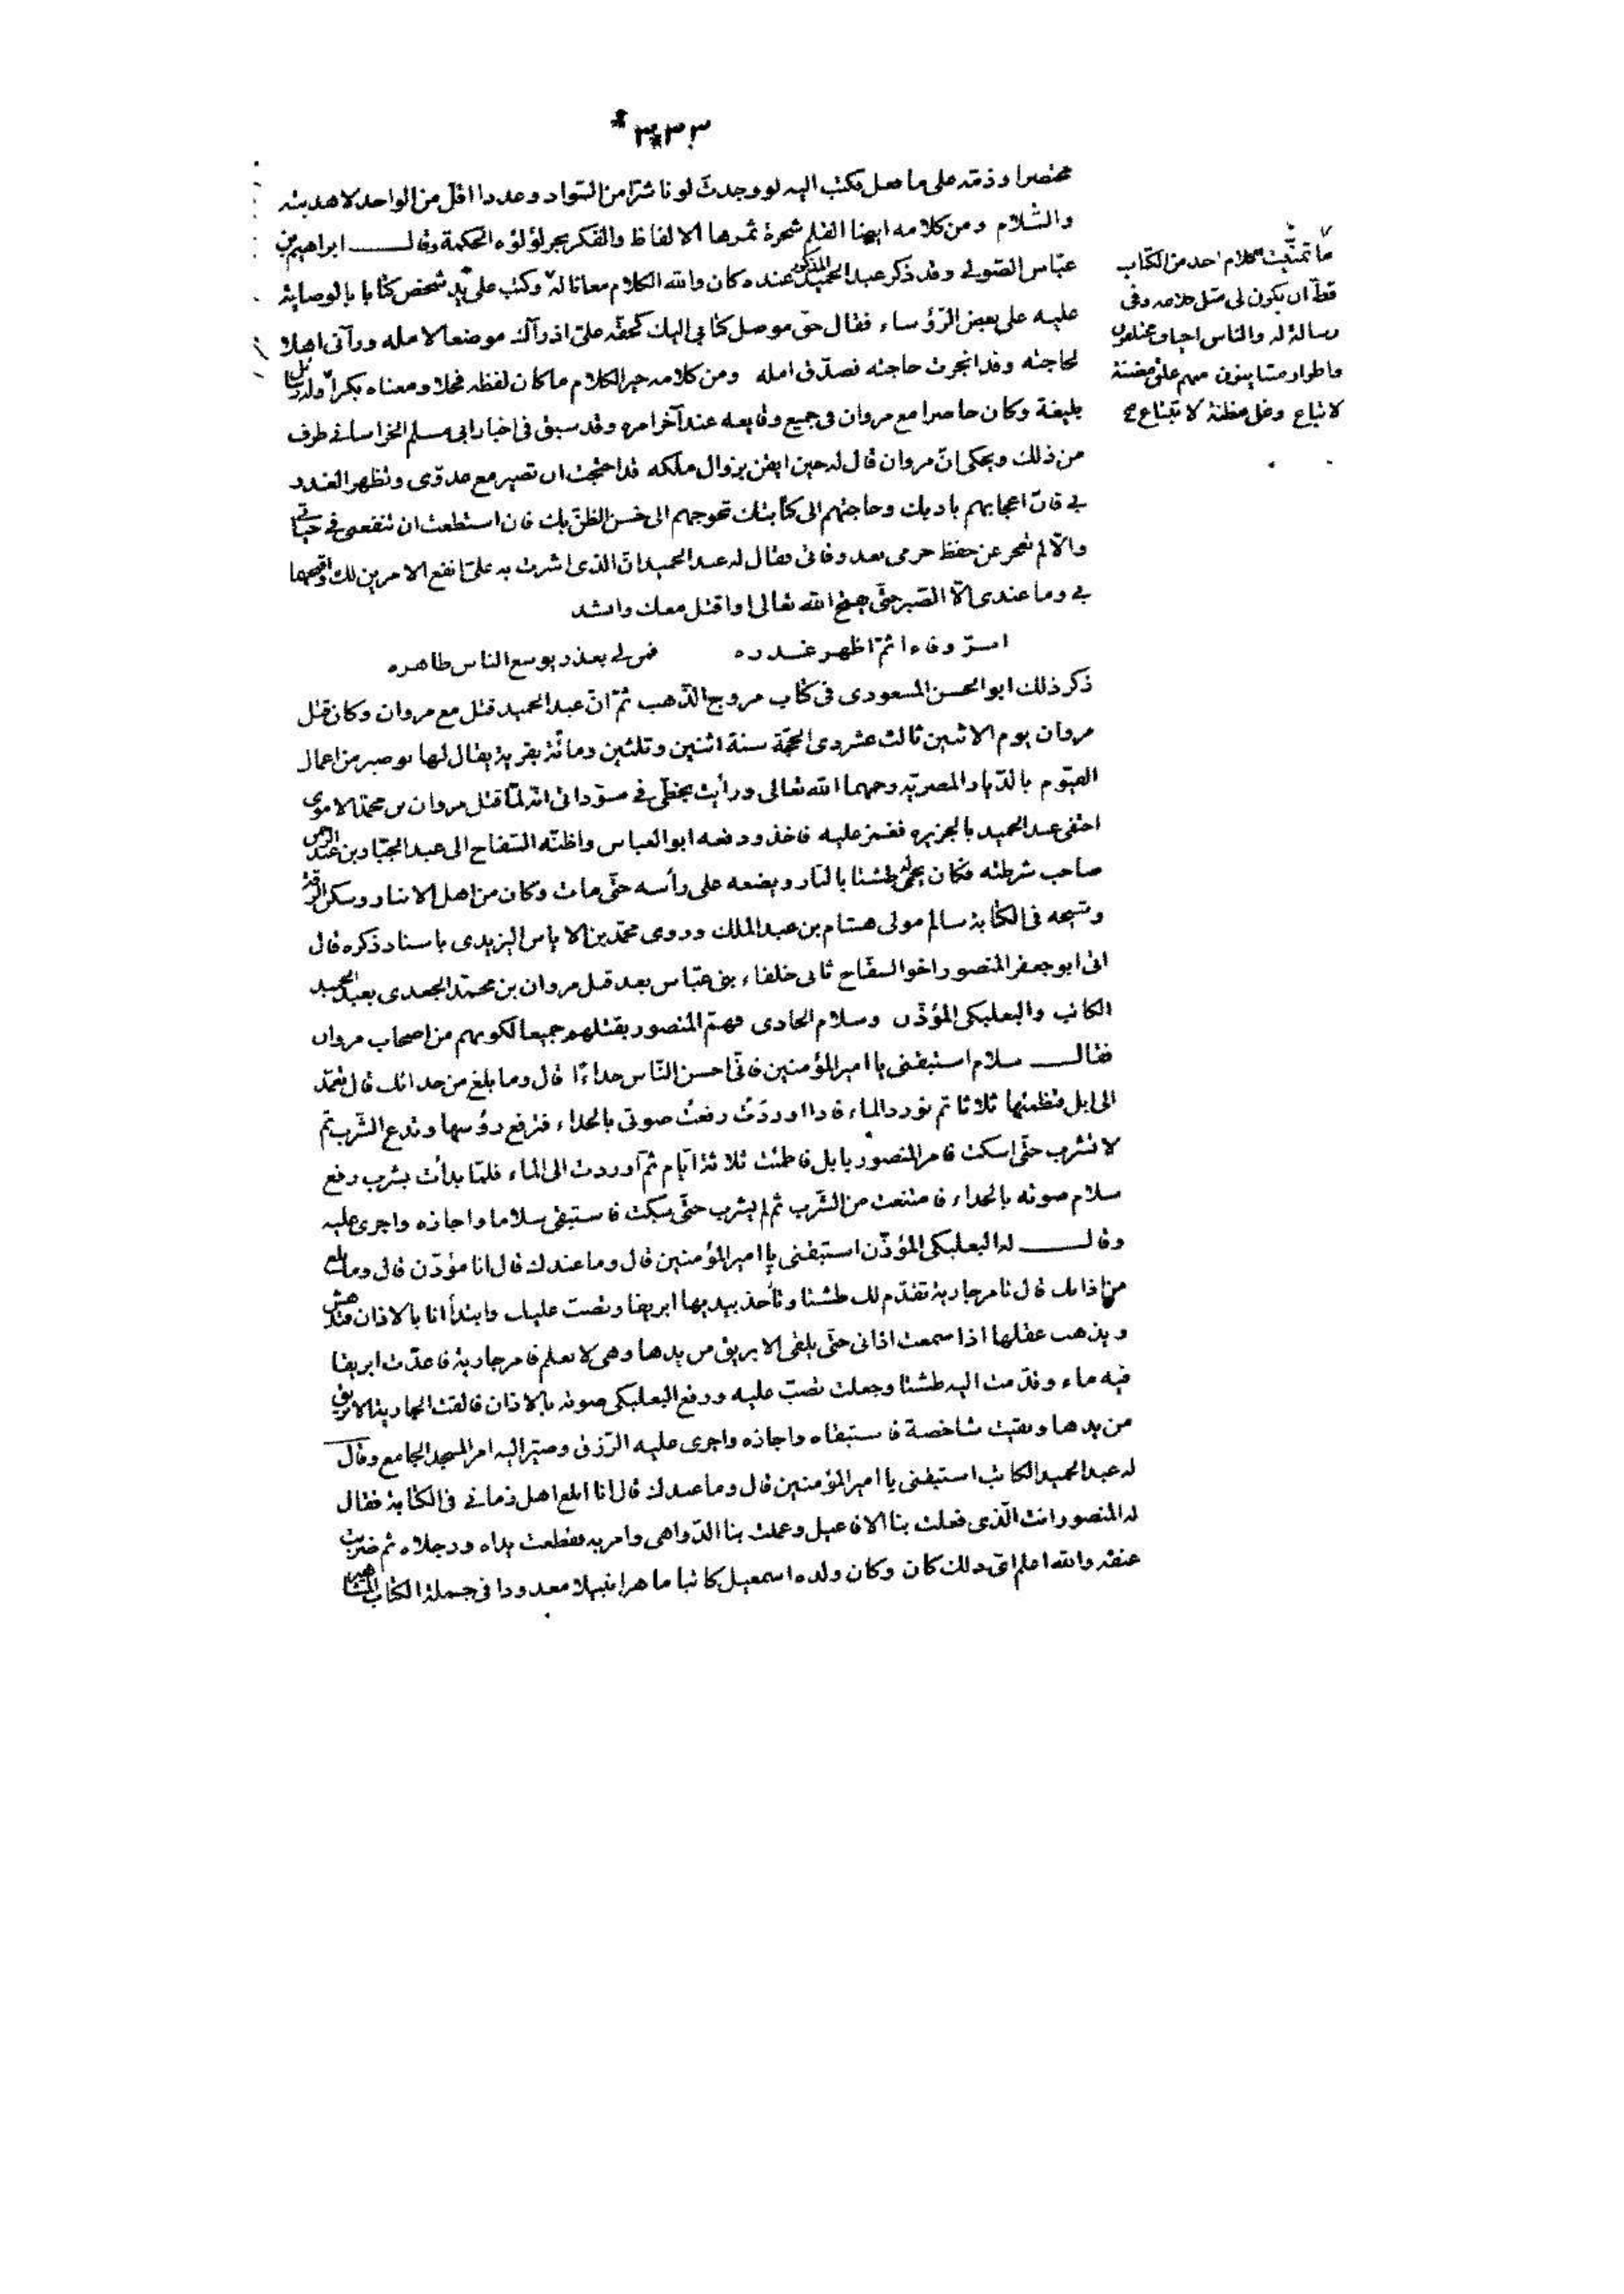 ٣٣٣
مختصرا وذمه على ما فعل فكتب اليه لو وجدت لونا شرّا من السّواد وعددا اقلّ من الواحد لاهديته
والسّلام ومن كلامه ايضا القلم شجرة ثمرها الالفاظ والفكر بحر لؤلؤه الحكمة وقال ابراهيم بن
عبّاس الصّولى وقد ذكر عبد الحميد المذكور عنده كان والله الكلام معانا له وكتب على يد شخص كتابا بالوصاية
عليه على بعض الرّؤساء فقال حقّ موصل كتابى اليك كحقّه علىّ اذ رآك موضعا لامله ورآنى اهلا
لحاجته وقد انجزت حاجته فصدّق امله ومن كلامه خير الكلام ما كان لفظه فحلا ومعناه بكرا وله رسائل
بليغة وكان حاضرا مع مروان فى جميع وقايعه عند آخر امره وقد سبق فى اخبار ابى مسلم الخراسانى طرف
من ذلك ويحكى انّ مروان قال له حين ايقن بزوال ملكه قد احتجت ان تصير مع عدوّى وتظهر الغدر
بى فانّ اعجابهم بادبك وحاجتهم الى كتابتك تحوجهم الى حسن الظنّ بك فان استطعت ان تنفعنى فى حياتى
والّا لم تعجز عن حفظ حرمى بعد وفاتى فقال له عبد الحميد انّ الذى اشرت به علىّ انفع الامرين لك واقبحهما
بى وما عندى الّا الصّبر حتّى يفتح الله تعالى او اقتل معك وانشد
اسرّ وفاء ثمّ اظهر غدره فمن لى بعذر يوسع الناس ظاهره
ذكر ذلك ابو الحسن المسعودى فى كتاب مروج الذّهب ثمّ انّ عبد الحميد قتل مع مروان وكان قتل
مروان يوم الاثنين ثالث عشر ذى الحجّة سنة اثنين وثلثين ومائة بقرية يقال لها بوصير من اعمال
الفيّوم بالدّيار المصريّة رحمهما الله تعالى ورأيت بخطّى فى مسوّداتى انّه لمّا قتل مروان بن محمّد الاموى
اختفى عبد الحميد بالجزيره فغمز عليه فاخذ ودفعه ابو العباس واظنّه السّفاح الى عبد الجبّار بن عبد الرحمن
صاحب شرطته فكان يحمى له طشتا بالنّار ويضعه على رأسه حتّى مات وكان من اهل الانبار وسكن الرقة
وشيخه فى الكتابة سالم مولى هشام بن عبد الملك وروى محمّد بن الاياس اليزيدى باسناد ذكره قال
اتى ابو جعفر المنصور اخو السفّاح ثانى خلفاء بنى عبّاس بعد قتل مروان بن محمّد الجعدى بعبد الحميد
الكاتب والبعلبكى المؤذّن وسلام الحادى فهمّ المنصور بقتلهم جميعا لكونهم من اصحاب مروان
فقال سلام استبقنى يا امير المؤمنين فانّى احسن النّاس حداءًا قال وما بلغ من حدائك قال تعمد
الى ابل فتظمئها ثلاثا ثم تورد الماء فاذا اوردت رفعت صوتى بالحداء فترفع رؤسها وتدع الشّرب ثم
لا تشرب حتّى اسكت فامر المنصور بابل فاظمئت ثلاثة ايّام ثمّ اوردت الى الماء فلمّا بدأت بشرب رفع
سلام صوته بالحداء فامتنعت من الشّرب ثم لم يشرب حتّى سكت فاستبقى سلاما واجازه واجرى عليه
وقال له البعلبكى المؤذّن استبقنى يا امير المؤمنين قال وما عندك قال انا مؤذن قال وما بلغ
من اذانك قال تامر جارية تقدّم لك طشتا وتأخذ بيديها ابريقا وتصبّ عليك وابتدأ انا بالاذان فتدهش
ويذهب عقلها اذا سمعت اذانى حتّى يلقى الابريق من يدها وهى لا تعلم فامر جارية فاعدّت ابريقا
فيه ماء وقدّمت اليه طشتا وجعلت تصبّ عليه ورفع البعلبكى صوته بالاذان فالقت الجارية الابريق
من يدها وبقيت شاخصة فاستبقاه واجازه واجرى عليه الرّزق وصيّر اليه امر المسجد الجامع وقال
له عبد الحميد الكاتب استبقنى يا امير المؤمنين قال وما عندك قال انا ابلغ اهل زمانى فى الكتابة فقال
له المنصور انت الّذى فعلت بنا الافاعيل وعملت بنا الدّواهى وامر به فقطعت يداه ورجلاه ثم ضربت
عنقه والله اعلم اىّ ذلك كان وكان ولده اسمعيل كاتبا ماهرا نبيلا معدودا فى جملة الكتاب المشاهير
ما تمنّيت كلام احد من الكتاب
قطّ ان يكون لى مثل كلامه وفى
رسالة له والناس اخياف مختلفون
واطوار متباينون منهم علق مضنّة
لا يباع وغل مظنة لا يبتاع صح